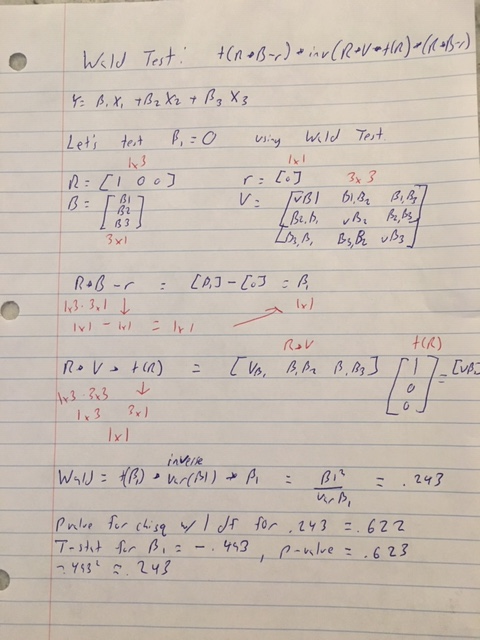 Wald Test: t(R*B-r) * inv(R*V*t(R)*(R*B-r)
Y = B₁X₁ + B₂X₂ + B₃X₃
Let's test B₁ = 0 using Wald Test.
1x3 1x1 3x3
R = [1 0 0] r = [0]
B = [B1 B2 B3] V = [vB1 B₁,B₂ B₁,B₃
B₂,B₁ vB2 B₂,B₃
B₃,B₁ B₃,B₂ vB3]
3x1
R*B-r = [B₁]-[0] = B₁
1x3 · 3x1 ↓ 1x1
1x1 - 1x1 = 1x1
R*V t(R)
R * V * t(R) = [VB₁ B₁B₂ B₁B₃] [1 0 0] = [VB₁
1x3 · 3x3 ↓
1x3 3x1
1x1
inverse
Wald = t(B₁) * var(B1) * B₁ = B1²/var B₁ = .243
Pvalue for chisq w/ 1 df for .243 = .622
T-stat for B₁ = -.493, p-value = .623
-.493² = .243